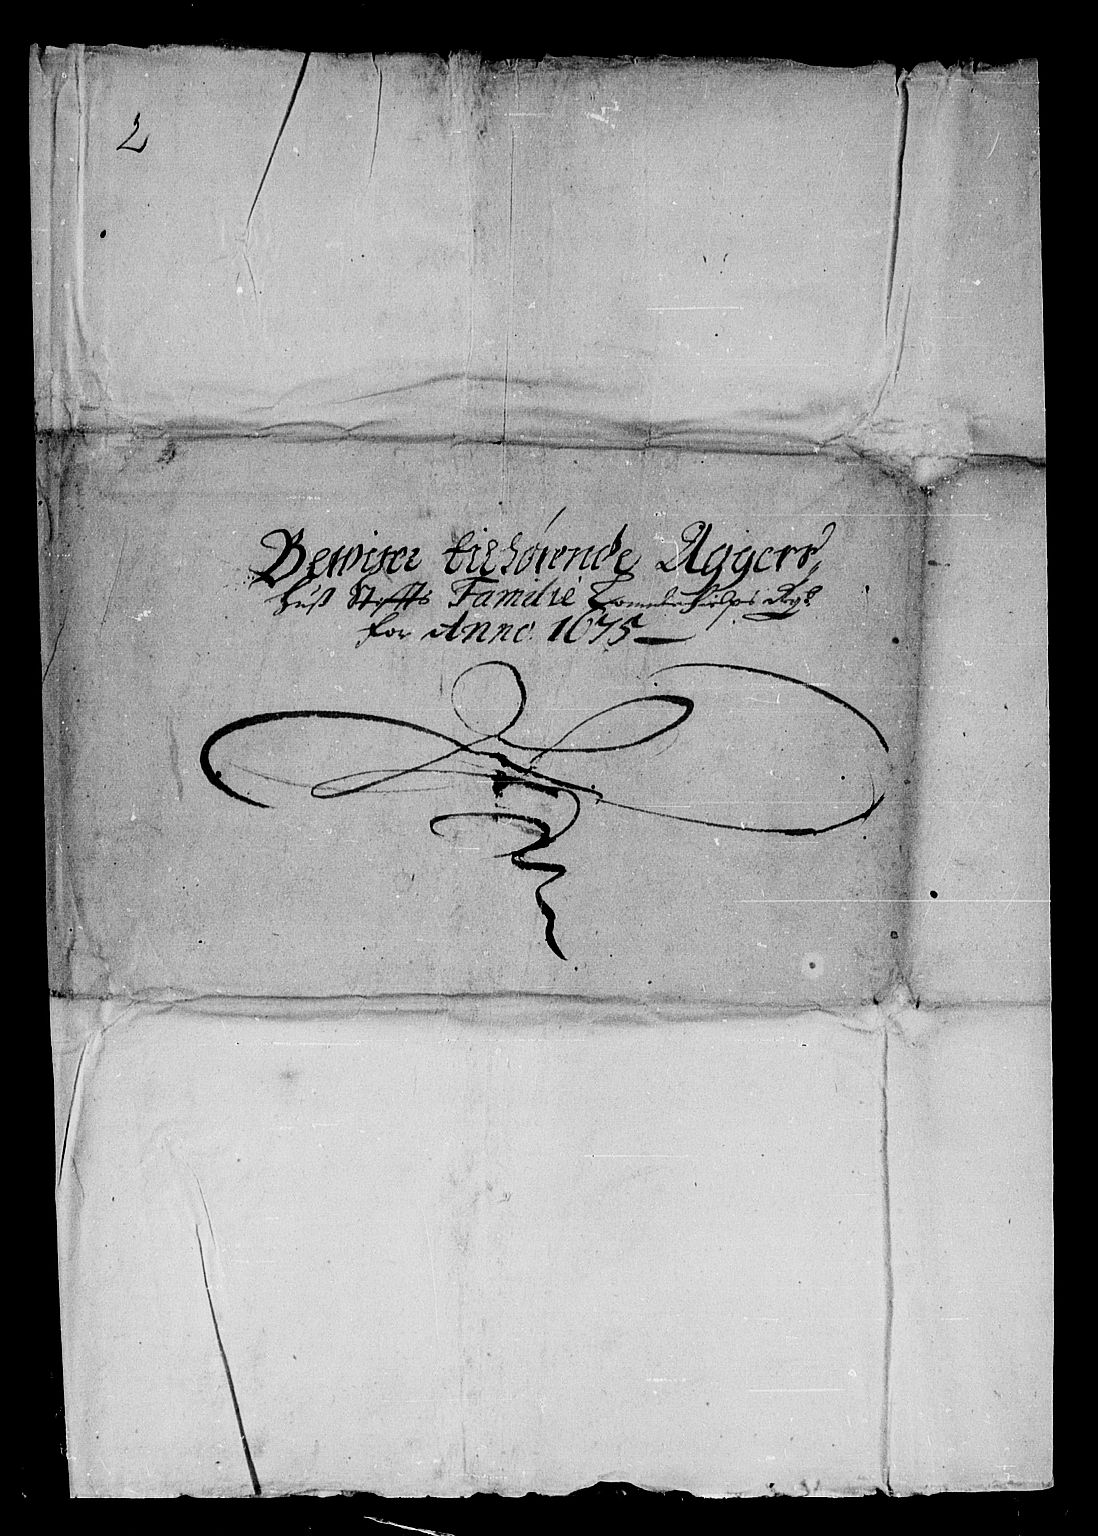 2
Bewiser tilhørende Aggers,
huß Stiffts Familie
for Anno 1675